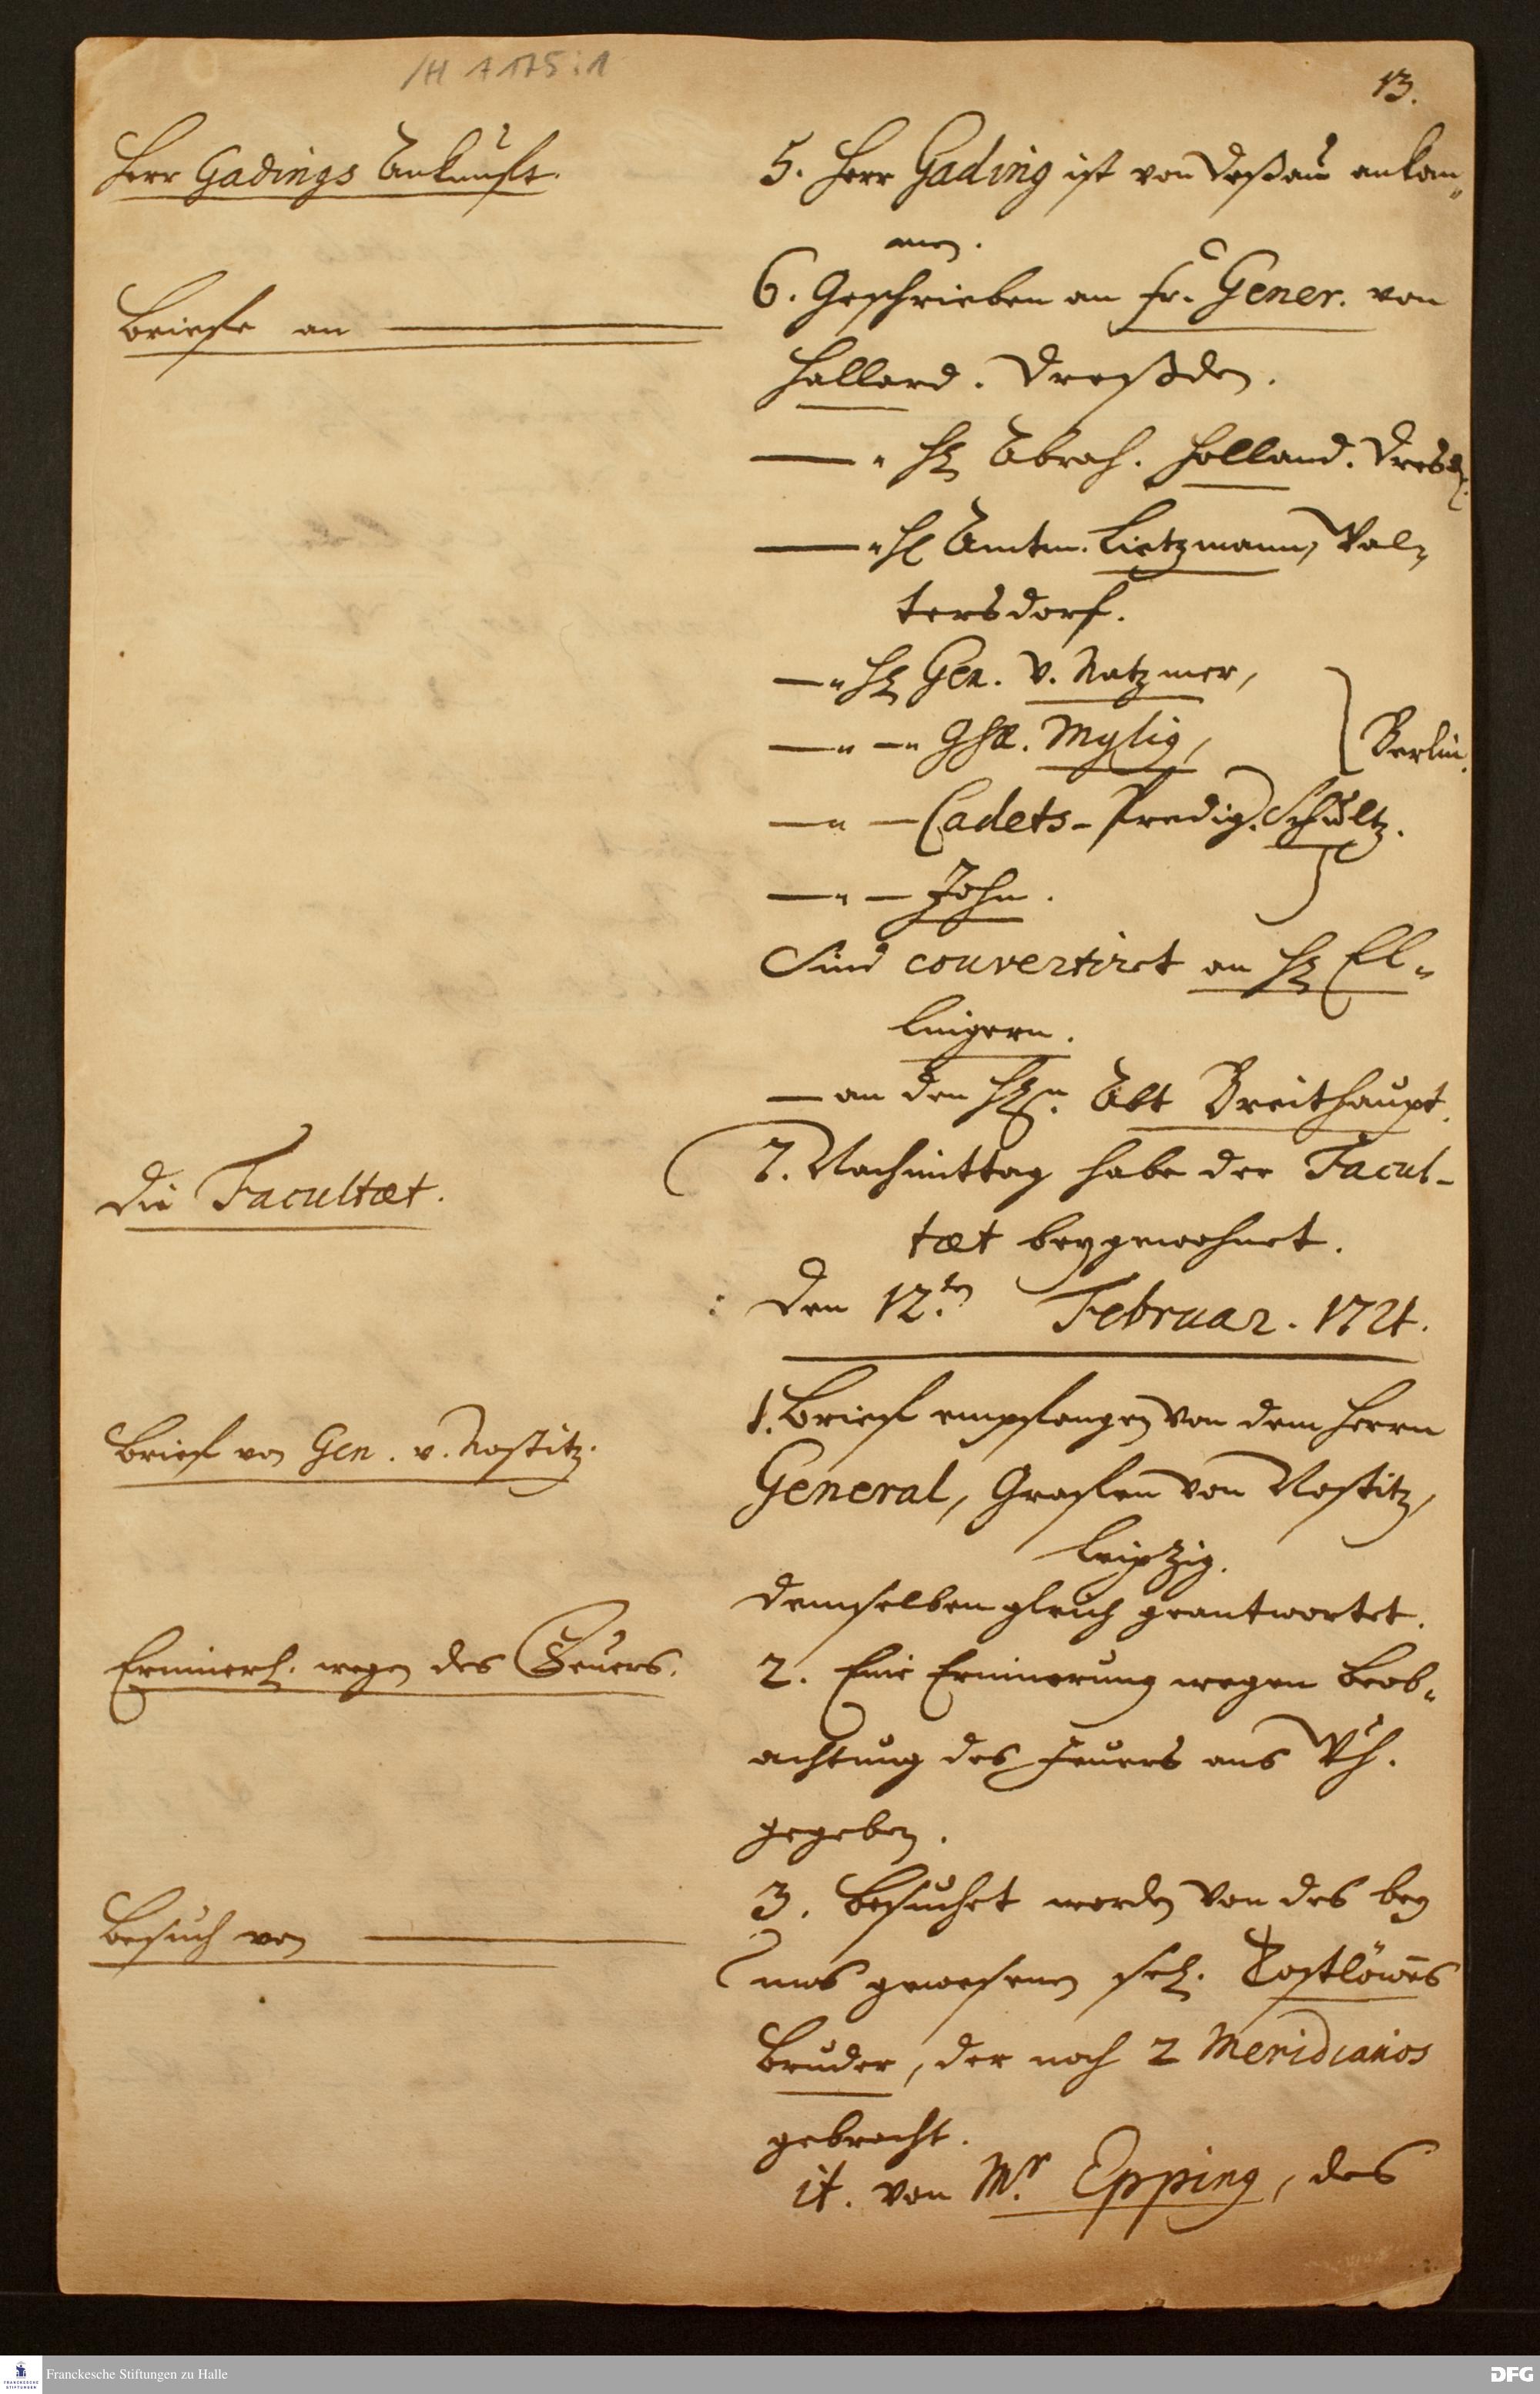 /H A 175:1
13.
Herr Gadings Ankunft.
5. Herr Gading ist von Deßau ankom„
men.
Briefe an
6. Geschrieben an Fr. Gener. von
Hallard. Dreßden.
— „ H Abrah. Holland. Dresd.
— „ H Amtm. Lietzmann, Wal„
tersdorf.
— „ H Gen. v. Natzmer,
— „ — „ GhR. Mylig,
Berlin.
— „ — Cadets-Predig. Schultz.
— „ — John.
Sind couvertiret an H El„
lingern.
— an den Hn. Abt Breithaupt.
Die Facultæt.
7. Nachmittag habe der Facul-
tæt beygewohnet.
Den 12.ten Februar. 1721.
Brief von Gen. v. Nostitz.
1. Brief empfangen von dem Herrn
General, Grafen von Nostitz,
Leipzig.
demselben gleich geantwortet.
Erinnerh. wegen des Feuers.
2. Eine Erinnerung wegen Beob„
achtung des Feuers aus
gegeben.
Besuch von
3. Besuchet worden von des bey
uns gewesenen sel. Postlöwens
Bruder, der noch 2 Meridianos
gebracht.
it. von Mr. Epping, des
Franckesche Stiftungen zu Halle
DFG